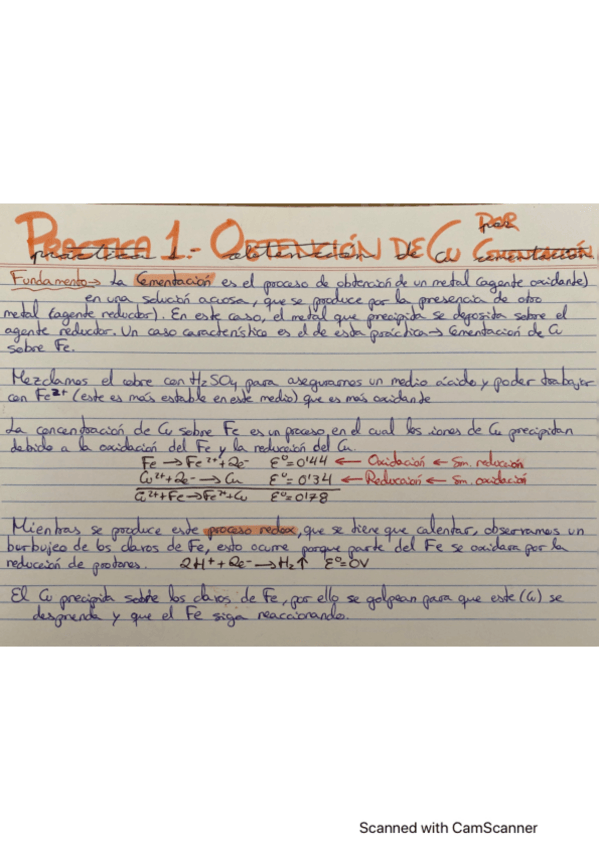 PRACTICA 1.- OBTENCIÓN DE Cu POR CEMENTACIÓN
Fundamento→ La Cementación es el proceso de obtención de un metal (agente oxidante)
en una solución acuosa, que se produce por la presencia de otro
metal (agente reductor). En este caso, el metal que precipita se deposita sobre el
agente reductor. Un caso característico es el de esta práctica→ Cementación de Cu
sobre Fe.
Mezclamos el cobre con H₂SO₄ para asegurarnos un medio ácido y poder trabajar
con Fe²⁺ (este es más estable en este medio) que es más oxidante
La concentración de Cu sobre Fe es un proceso, en el cual los iones de Cu precipitan
debido a la oxidación del Fe y la reducción del Cu.
Fe → Fe²⁺+2e⁻ ℰ°=0'44 ← Oxidación ← Sm. reducción
Cu²⁺+2e⁻ → Cu ℰ°=0'34 ← Reducción ← Sm. oxidación
Cu²⁺+Fe→Fe²⁺+Cu ℰ°=0'78
Mientras se produce este proceso redox, que se tiene que calentar, observamos un
burbujeo de los clavos de Fe, esto ocurre porque parte del Fe se oxidara por la
reducción de protones. 2H⁺+2e⁻→H₂↑ ℰ°=0V
El Cu precipita sobre los clavos de Fe, por ello se golpean para que este (Cu) se
desprenda y que el Fe siga reaccionando.
Scanned with CamScanner